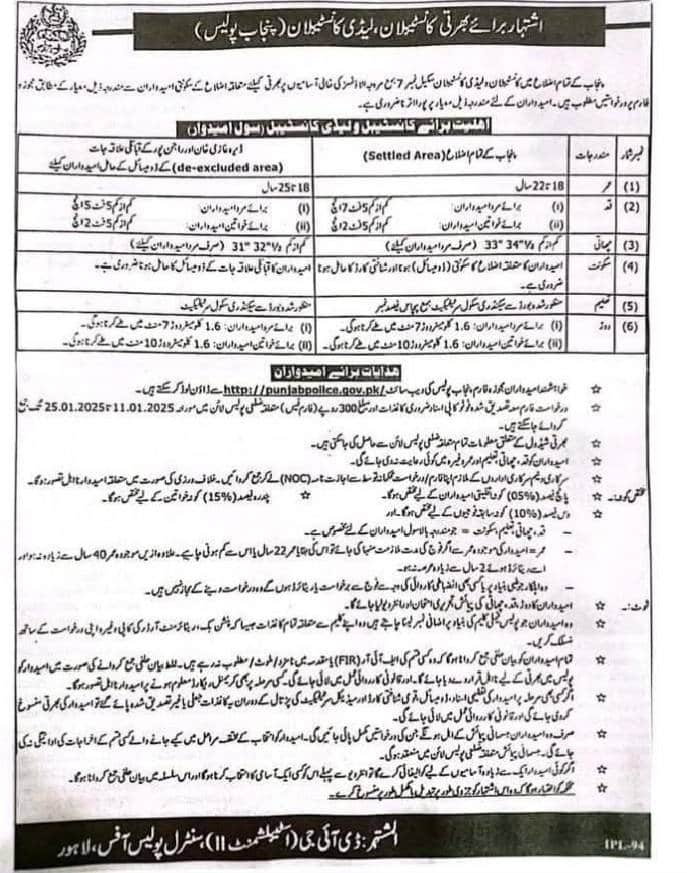 اشتہار برائے بھرتی کانسٹیبلان، لیڈی کانسٹیبلان (پنجاب پولیس)
پنجاب کے تمام اضلاع میں کانسٹیبلان و لیڈی کانسٹیبلان سکیل نمبر 7 بمع مروجہ الاؤنسز کی خالی آسامیوں پر بھرتی کیلئے متعلقہ اضلاع کے سکونتی امیدواران سے مندرجہ ذیل معیار کے مطابق مجوزہ
فارم پر درخواستیں مطلوب ہیں۔ امیدواران کے لئے مندرجہ ذیل معیار پر پورا اترنا ضروری ہے۔
اہلیت برائے کانسٹیبل و لیڈی کانسٹیبل (سول امیدوار)
نمبر شمار مندرجات پنجاب کے تمام اضلاع (Settled Area) ڈیرہ غازی خان اور راجن پور کے قبائلی علاقہ جات
(de-excluded area) کے ڈومیسائل کے حامل امیدواران کیلئے
(1) عمر 18 تا 22 سال 18 تا 25 سال
(2) قد (i) برائے مرد امیدواران: کم از کم 5 فٹ 7 انچ (i) برائے مرد امیدواران: کم از کم 5 فٹ 5 انچ
(ii) برائے خواتین امیدواران: کم از کم 5 فٹ 2 انچ (ii) برائے خواتین امیدواران: کم از کم 5 فٹ 2 انچ
(3) چھاتی کم از کم 33" 34½" (صرف مرد امیدواران کیلئے) کم از کم 31" 32½" (صرف مرد امیدواران کیلئے)
(4) سکونت امیدواران کا متعلقہ اضلاع کا سکونتی (ڈومیسائل) ہونا اور شناختی کارڈ کا حامل ہونا ضروری ہے۔ امیدواران کا قبائلی علاقہ جات کے ڈومیسائل کا حامل ہونا ضروری ہے۔
(5) تعلیم منظور شدہ بورڈ سے سیکنڈری سکول سرٹیفکیٹ بمع پچاس فیصد نمبر منظور شدہ بورڈ سے سیکنڈری سکول سرٹیفکیٹ
(6) دوڑ (i) برائے مرد امیدواران: 1.6 کلومیٹر دوڑ 7 منٹ میں طے کرنا ہوگی۔ (i) برائے مرد امیدواران: 1.6 کلومیٹر دوڑ 7 منٹ میں طے کرنا ہوگی۔
(ii) برائے خواتین امیدواران: 1.6 کلومیٹر دوڑ 10 منٹ میں طے کرنا ہوگی۔ (ii) برائے خواتین امیدواران: 1.6 کلومیٹر دوڑ 10 منٹ میں طے کرنا ہوگی۔
ہدایات برائے امیدواران
خواہشمند امیدواران مجوزہ فارم پنجاب پولیس کی ویب سائٹ http://punjabpolice.gov.pk/ سے ڈاؤن لوڈ کر سکتے ہیں۔
درخواست فارم معہ تصدیق شدہ فوٹو کاپی اسناد ضروری کاغذات اور مبلغ 300 روپے (فارم فیس) متعلقہ ضلعی پولیس لائن میں مورخہ 11.01.2025 تا 25.01.2025 تک جمع
کروائے جا سکتے ہیں۔
بھرتی شیڈول کے متعلق معلومات تمام متعلقہ ضلعی پولیس لائن سے حاصل کی جا سکتی ہیں۔
امیدواران کو قد، چھاتی، تعلیم اور عمر وغیرہ میں کوئی رعایت نہ دی جائے گی۔
سرکاری و نیم سرکاری اداروں کے ملازم اپنا فارم / درخواست محکمانہ توسط سے اجازت نامہ (NOC) لے کر جمع کروائیں۔ خلاف ورزی کی صورت میں متعلقہ امیدوار نااہل تصور ہوگا۔
مختص کوٹہ:۔ پانچ فیصد (05%) کوٹہ اقلیتی امیدواران کے لیے مختص ہوگا۔ پندرہ فیصد (15%) کوٹہ خواتین کے لیے مختص ہوگا۔
دس فیصد (10%) کوٹہ سابقہ فوجیوں کے لیے مختص ہوگا۔ اور
– قد، چھاتی، تعلیم، سکونت = جو مندرجہ بالا سول امیدواران کے لئے مخصوص ہے۔
– عمر = امیدوار کی موجودہ عمر سے اگر فوج کی مدت ملازمت منہا کی جائے تو اس کی بقایا عمر 22 سال یا اس سے کم ہونی چاہیے۔ علاوہ ازیں موجودہ عمر 40 سال سے زیادہ نہ ہو اور
اسے ریٹائرڈ ہوئے 2 سال سے زیادہ عرصہ نہ ہو۔
– وہ اہلکار جو طبی بنیاد پر یا کسی بھی انضباطی کاروائی کی وجہ سے فوج سے برخواست یا ریٹائرڈ ہوں گے وہ درخواست دینے کے مجاز نہیں ہیں۔
نوٹ:۔ امیدواران کا دوڑ، قد، چھاتی کی پیمائش، تحریری امتحان اور انٹرویو لیا جائے گا۔
وہ امیدواران جو پولیس فیملی کلیم کی بنیاد پر اضافی نمبر لینا چاہتے ہیں وہ اپنے کلیم سے متعلقہ تمام کاغذات جیسا کہ پنشن بک، ریٹائرمنٹ آرڈر کی کاپی وغیرہ اپنی درخواست کے ساتھ
منسلک کریں۔
تمام امیدواران کو بیان حلفی جمع کروانا ہوگا کہ وہ کسی قسم کی ایف آئی آر (FIR) یا مقدمہ میں نامزد / ملوث / مطلوب نہ رہے ہیں۔ غلط بیان حلفی جمع کروانے کی صورت میں امیدوار کو
پولیس میں بھرتی کے لیے نااہل قرار دے دیا جائے گا۔ اور قانونی کارروائی عمل میں لائی جائے گی۔ کسی مرحلہ پر بھی کریمنل ریکارڈ معلوم ہونے پر امیدوار نااہل تصور ہوگا۔
اگر کسی بھی مرحلہ پر امیدوار کی تعلیمی اسناد، ڈومیسائل، قومی شناختی کارڈ اور میڈیکل سرٹیفکیٹ کی پڑتال کے دوران یہ کاغذات جعلی یا غیر تصدیق شدہ پائے گئے تو امیدوار کی بھرتی منسوخ
کر دی جائے گی اور قانونی کارروائی عمل میں لائی جائے گی۔
صرف وہ امیدواران جسمانی پیمائش کے اہل ہونگے جن کی درخواستیں مکمل پائی جائیں گی۔ امیدوار کو انتخاب کے مختلف مراحل میں کیے جانے والے کسی قسم کے اخراجات کی ادائیگی نہ کی
جائے گی۔ جسمانی پیمائش متعلقہ ضلعی پولیس لائن میں منعقد ہوگی۔
اگر کوئی امیدوار ایک سے زیادہ آسامیوں کے لیے کوالیفائی کرے گا تو انٹرویو سے پہلے اس کو کسی ایک آسامی کا انتخاب کرنا ہوگا اور اس سلسلہ میں بیان حلفی جمع کروانا ہوگا۔
محکمہ کو اختیار ہوگا کہ وہ اس اشتہار کو جزوی طور پر تبدیل یا مکمل طور پر منسوخ کرے۔
المشتہر: ڈی آئی جی (اسٹیبلشمنٹ II)، سنٹرل پولیس آفس، لاہور
IPL-94